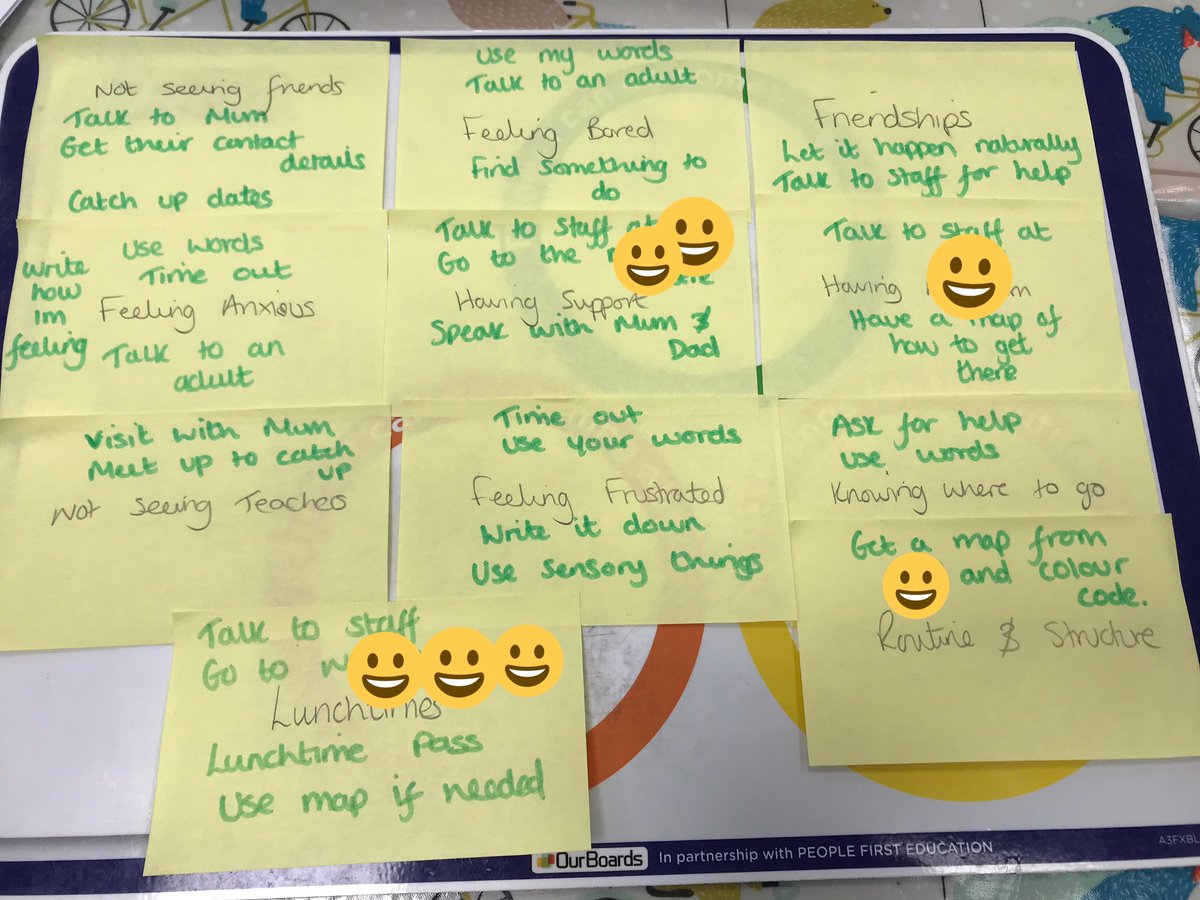 Not seeing friends
Talk to Mum
Get their contact
details
Catch up dates
Use my words
Talk to an adult
Feeling Bored
Find something to
do
Friendships
Let it happen naturally
Talk to staff for help
Use words
Time out
Write
how
Im
feeling
Feeling Anxious
Talk to an
adult
Talk to staff at
Go to the
Having Support
Speak with Mum &
Dad
Talk to staff at
Having
Have a map of
how to get
there
Visit with Mum
Meet up to catch
up
Not seeing Teachers
Time out
Use your words
Feeling Frustrated
Write it down
Use sensory things
Ask for help
Use words
Knowing where to go
Get a map from
and colour
code.
Routine & Structure
Talk to staff
Go to
Lunchtimes
Lunchtime Pass
Use map if needed
OurBoards
In partnership with PEOPLE FIRST EDUCATION
A3FXBL